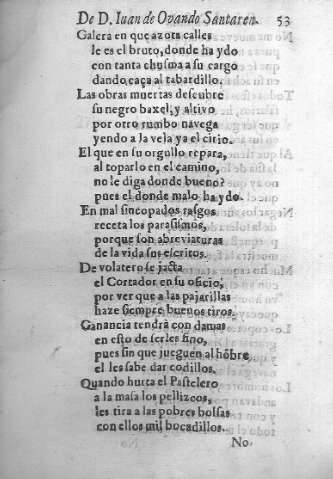 De D. Iuan de Ovando Santaren. 53
Galera en que azota calles
le es el bruto, donde ha ydo
con tanta chusma a su cargo
dando caça al tabardillo.
Las obras muertas descubre
su negro baxel, y altivo
por otro rumbo navega
yendo a la vela ya el cirio.
El que en su orgullo repara,
al toparlo en el camino,
no le diga donde bueno?
pues el donde malo ha ydo.
En mal sincopados rasgos
receta los parasismos,
porque son abreviaturas
de la vida sus escritos.
De volatero se jacta
el Cortador en su oficio,
por ver que a las pajarillas
haze siempre buenos tiros.
Ganancia tendrà con damas
en esto de serles fino,
pues sin que jueguen al hõbre
el les sabe dar codillos.
Quando hurta el Pastelero
a la masa los pellizcos,
les tira a las pobres bolsas
con ellos mil bocadillos.
No